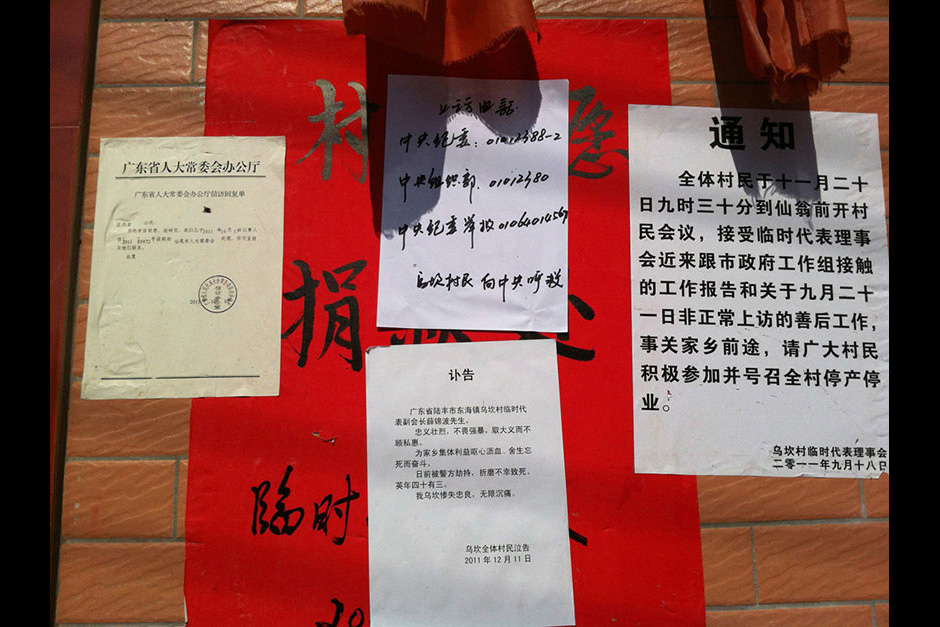 村
愿
捐
临时
广东省人大常委会办公厅
广东省人大常委会办公厅信访回复单
上访电话
中央纪委：01012388-2
中央组织部．01012380
中央纪委举报
乌坎村民 向中央呼救
讣告
广东省陆丰市东海镇乌坎村临时代
表副会长薛锦波先生。
忠义壮烈，不畏强暴，取大义而不
顾私惠。
为家乡集体利益呕心沥血、舍生忘
死而奋斗。
日前被警方劫持，折磨不幸致死，
英年四十有三。
我乌坎惨失忠良，无限沉痛。
乌坎全体村民泣告
2011年12月11日
通知
全体村民于十一月二十
日九时三十分到仙翁前开村
民会议，接受临时代表理事
会近来跟市政府工作组接触
的工作报告和关于九月二十
一日非正常上访的善后工作，
事关家乡前途，请广大村民
积极参加并号召全村停产停
业。
乌坎村临时代表理事会
二零一一年九月十八日